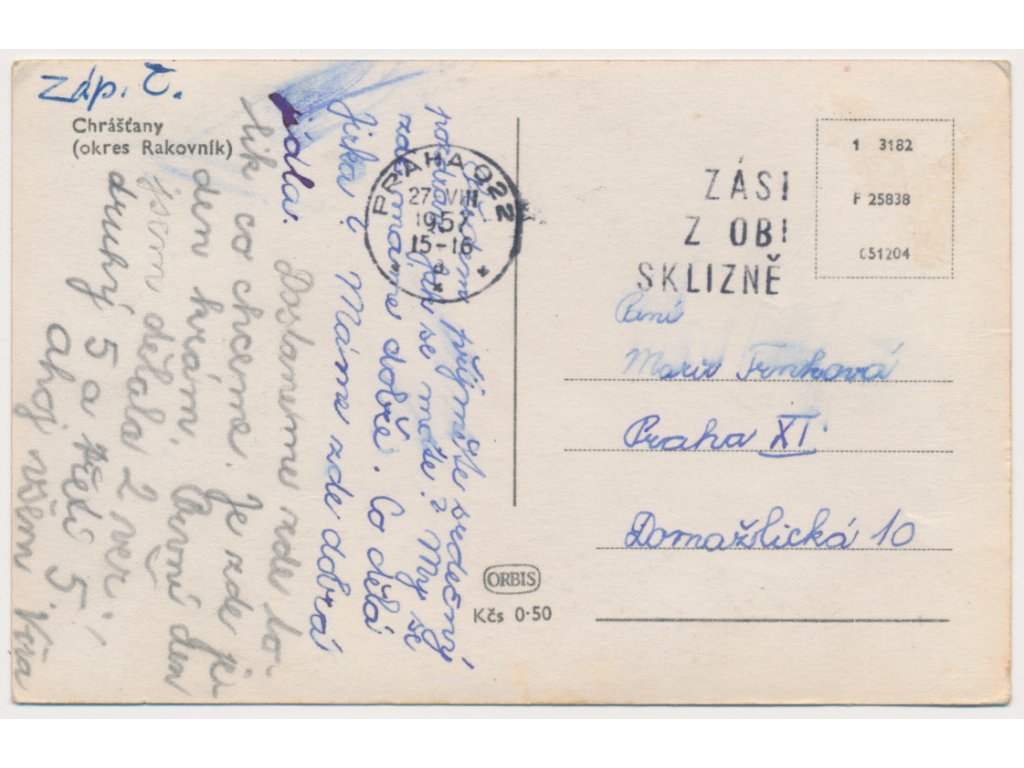 Záp. č.
Chrášťany
(okres Rakovník)
přijměte srdečný
se máte? My se
zde máme dobře. Co dělá
Jirka? Máme zde dobrá
jídla. Dostaneme zde to-
lik co chceme. Je zde
den hrám. První den
jsem dělala 2
druhý 5 a třetí 5.
Ahoj všem Věra
PRAHA 022
27. VIII
1957
15-16
*
ZÁSI
Z OBI
SKLIZNĚ
1 3182
F 25838
C51204
Paní
Marie Trnková
Praha XI
Domažlická 10
ORBIS
Kčs 0·50